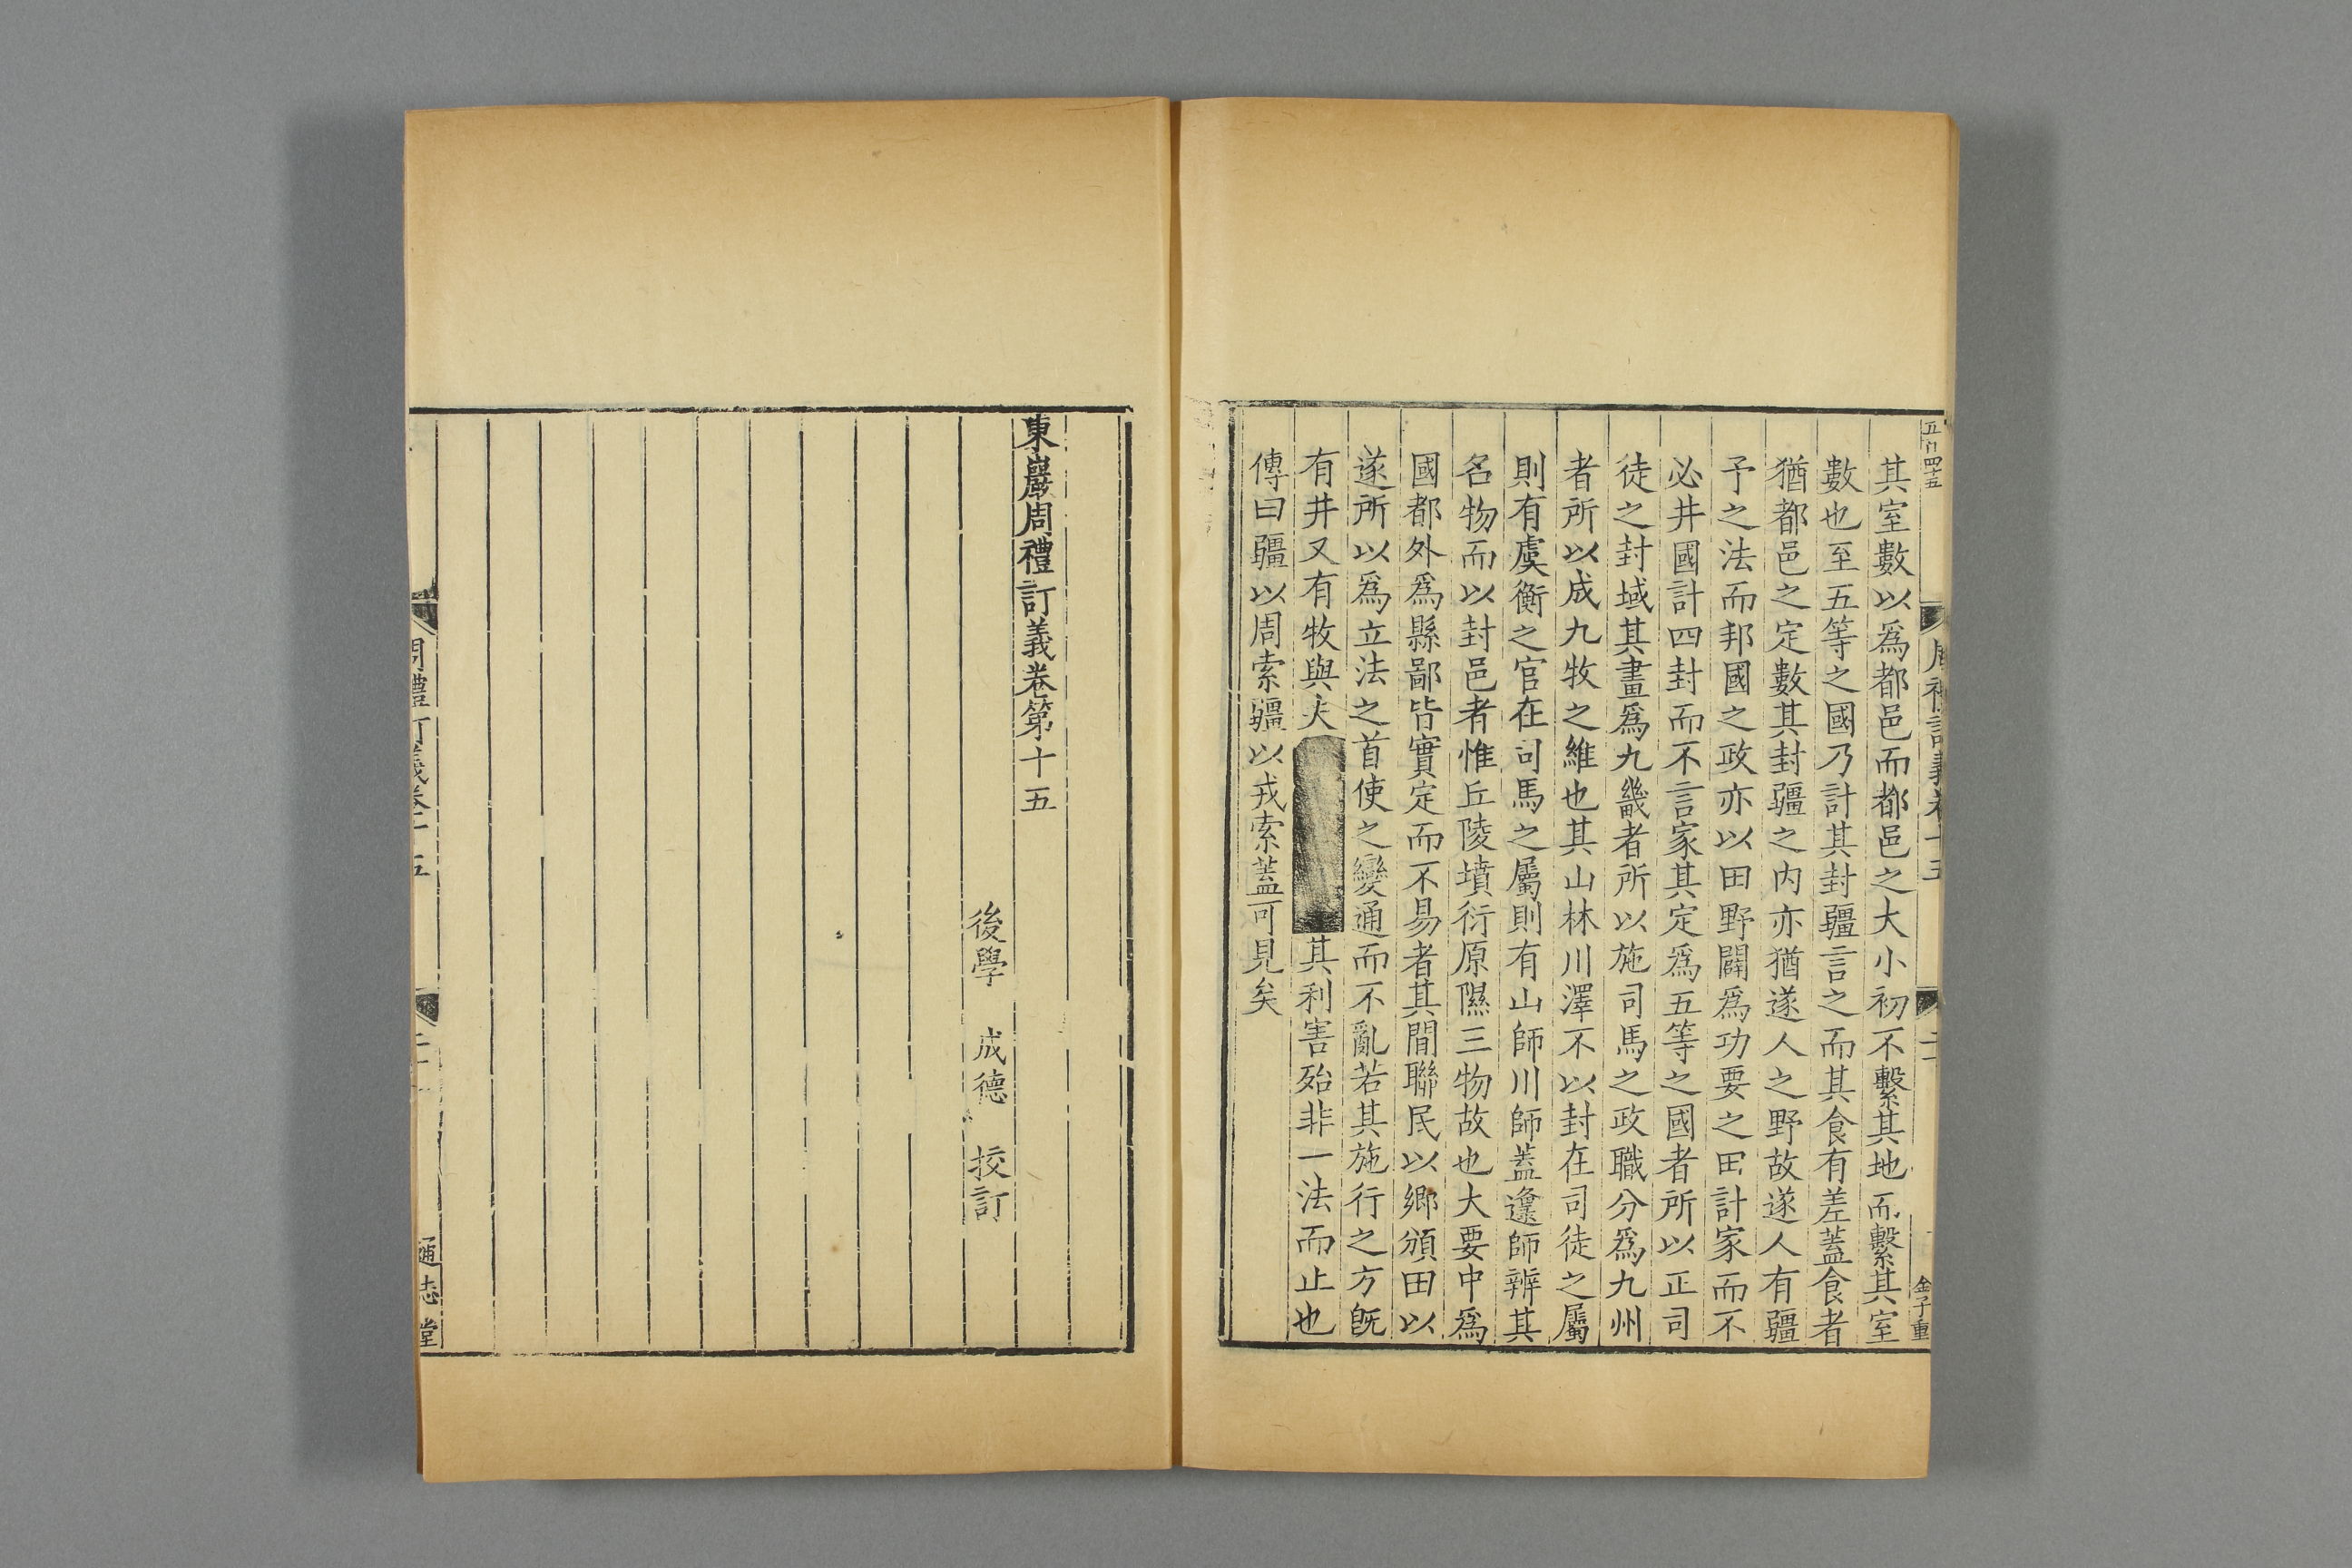 其室數以爲都邑而都邑之大小初不繫其地而繫其室
數也至五等之國乃計其封疆言之而其食有差蓋食者
猶都邑之定數其封疆之内亦猶遂人之野故遂人有疆
予之法而邦國之政亦以田野闢爲功要之田計家而不
必井國計四封而不言家其定爲五等之國者所以正司
徒之封域其畫爲九畿者所以施司馬之政職分爲九州
者所以成九牧之維也其山林川澤不以封在司徒之屬
則有虞衡之官在司馬之屬則有山師川師蓋邍師辨其
名物而以封邑者惟丘陵墳衍原隰三物故也大要中爲
國都外爲縣鄙皆實定而不易者其間聯民以鄉頒田以
遂所以爲立法之首使之變通而不亂若其施行之方旣
有井又有牧與夫其利害殆非一法而止也
傳曰疆以周索疆以戎索蓋可見矣
金子重
東巖周禮訂義卷第十五
後學 成德 挍訂
周禮訂義卷十五
通志堂